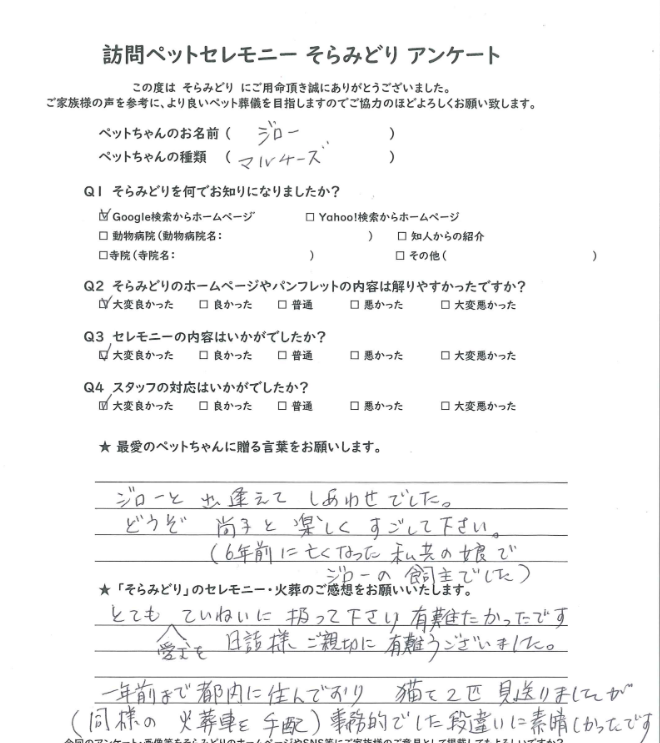 訪問ペットセレモニー そらみどり アンケート
この度は そらみどり にご用命頂き誠にありがとうございました。
ご家族様の声を参考に、より良いペット葬儀を目指しますのでご協力のほどよろしくお願い致します。
ペットちゃんのお名前 ( ジロー )
ペットちゃんの種類 ( マルチーズ )
Q1 そらみどりを何でお知りになりましたか?
☑ Google検索からホームページ □ Yahoo!検索からホームページ
□ 動物病院(動物病院名: ) □ 知人からの紹介
□寺院(寺院名: ) □ その他( )
Q2 そらみどりのホームページやパンフレットの内容は解りやすかったですか?
☑ 大変良かった □ 良かった □ 普通 □ 悪かった □ 大変悪かった
Q3 セレモニーの内容はいかがでしたか?
☑ 大変良かった □ 良かった □ 普通 □ 悪かった □ 大変悪かった
Q4 スタッフの対応はいかがでしたか?
☑ 大変良かった □ 良かった □ 普通 □ 悪かった □ 大変悪かった
★ 最愛のペットちゃんに贈る言葉をお願いします。
ジローと 出逢えて しあわせでした。
どうぞ 尚子と 楽しく すごして下さい。
(6年前に亡くなった 私共の娘で
ジローの 飼主でした)
★「そらみどり」のセレモニー・火葬のご感想をお願いいたします。
とても ていねいに 扱って下さり 有難たかったです
愛犬を 日話様 ご親切に 有難うございました。
一年前まで都内に住んでおり 猫を2匹 見送りましたが
(同様の 火葬車を 手配) 事務的でした 段違いに素晴しかったです
今回のアンケート・画像等をそらみどりのホームページやSNS等にご家族様のご意見として掲載してもよろしいですか?